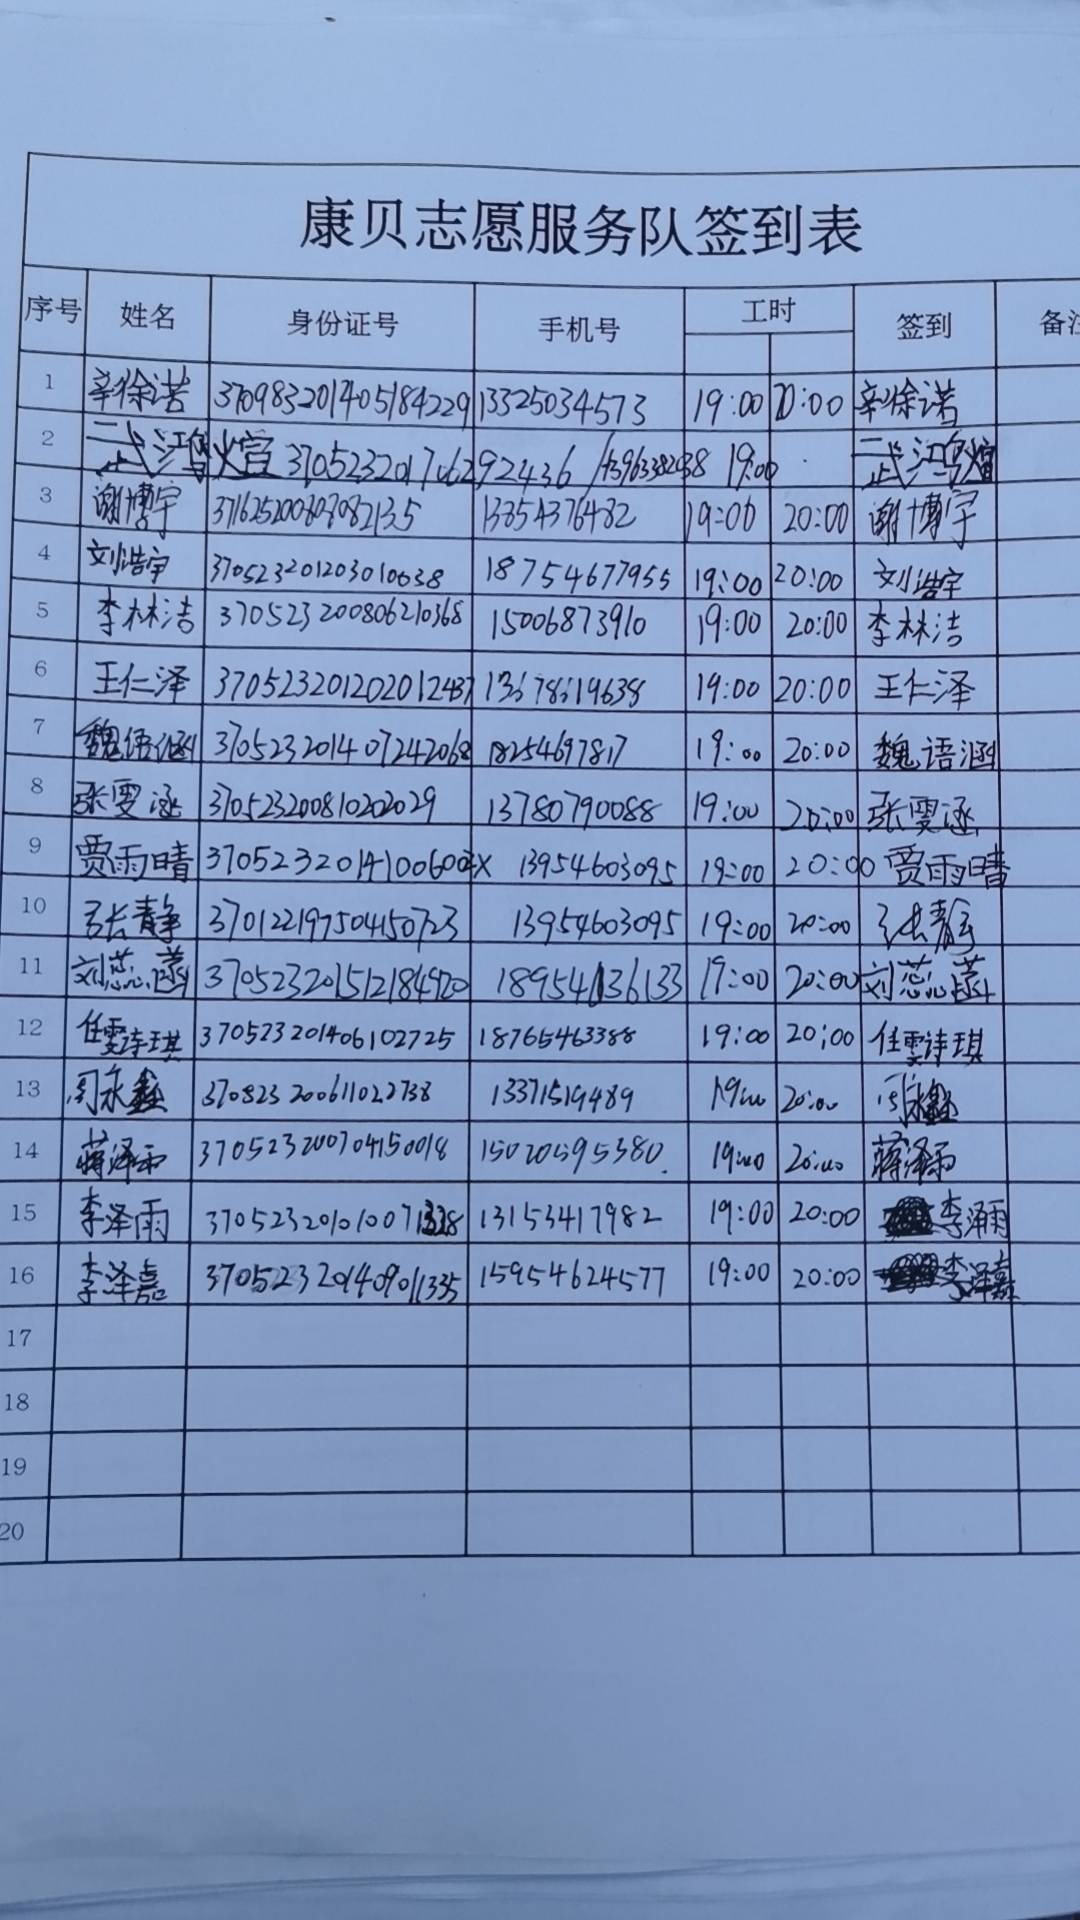 康贝志愿服务队签到表
序号 姓名 身份证号 手机号 工时 签到 备注
1 辛徐诺 370983201405184229 13325034573 19:00 20:00 辛徐诺
2 武鸿煊 370523201706292436 13963382038 19:00 武鸿煊
3 谢博宇 13854376482 19:00 20:00 谢博宇
4 刘浩宇 370523201203010638 18754677955 19:00 20:00 刘浩宇
5 李林洁 370523200806210368 15006873910 19:00 20:00 李林洁
6 王仁泽 19:00 20:00 王仁泽
7 魏语涵 370523201407242068 18254697817 19:00 20:00 魏语涵
8 张雯涵 370523200810202029 13780790088 19:00 20:00 张雯涵
9 贾雨晴 13954603095 19:00 20:00 贾雨晴
10 张静 13954603095 19:00 20:00 张静
11 刘蕊菡 18954636133 19:00 20:00 刘蕊菡
12 任雯诗琪 370523201406102725 18765463388 19:00 20:00 任雯诗琪
13 周永鑫 370823200611022738 13371519489 19:00 20:00 周永鑫
14 蒋泽雨 370523200704150018 15020595380 19:00 20:00 蒋泽雨
15 李泽雨 13153417982 19:00 20:00 李泽雨
16 李泽嘉 370523201409011335 15954624577 19:00 20:00 李泽嘉
17
18
19
20